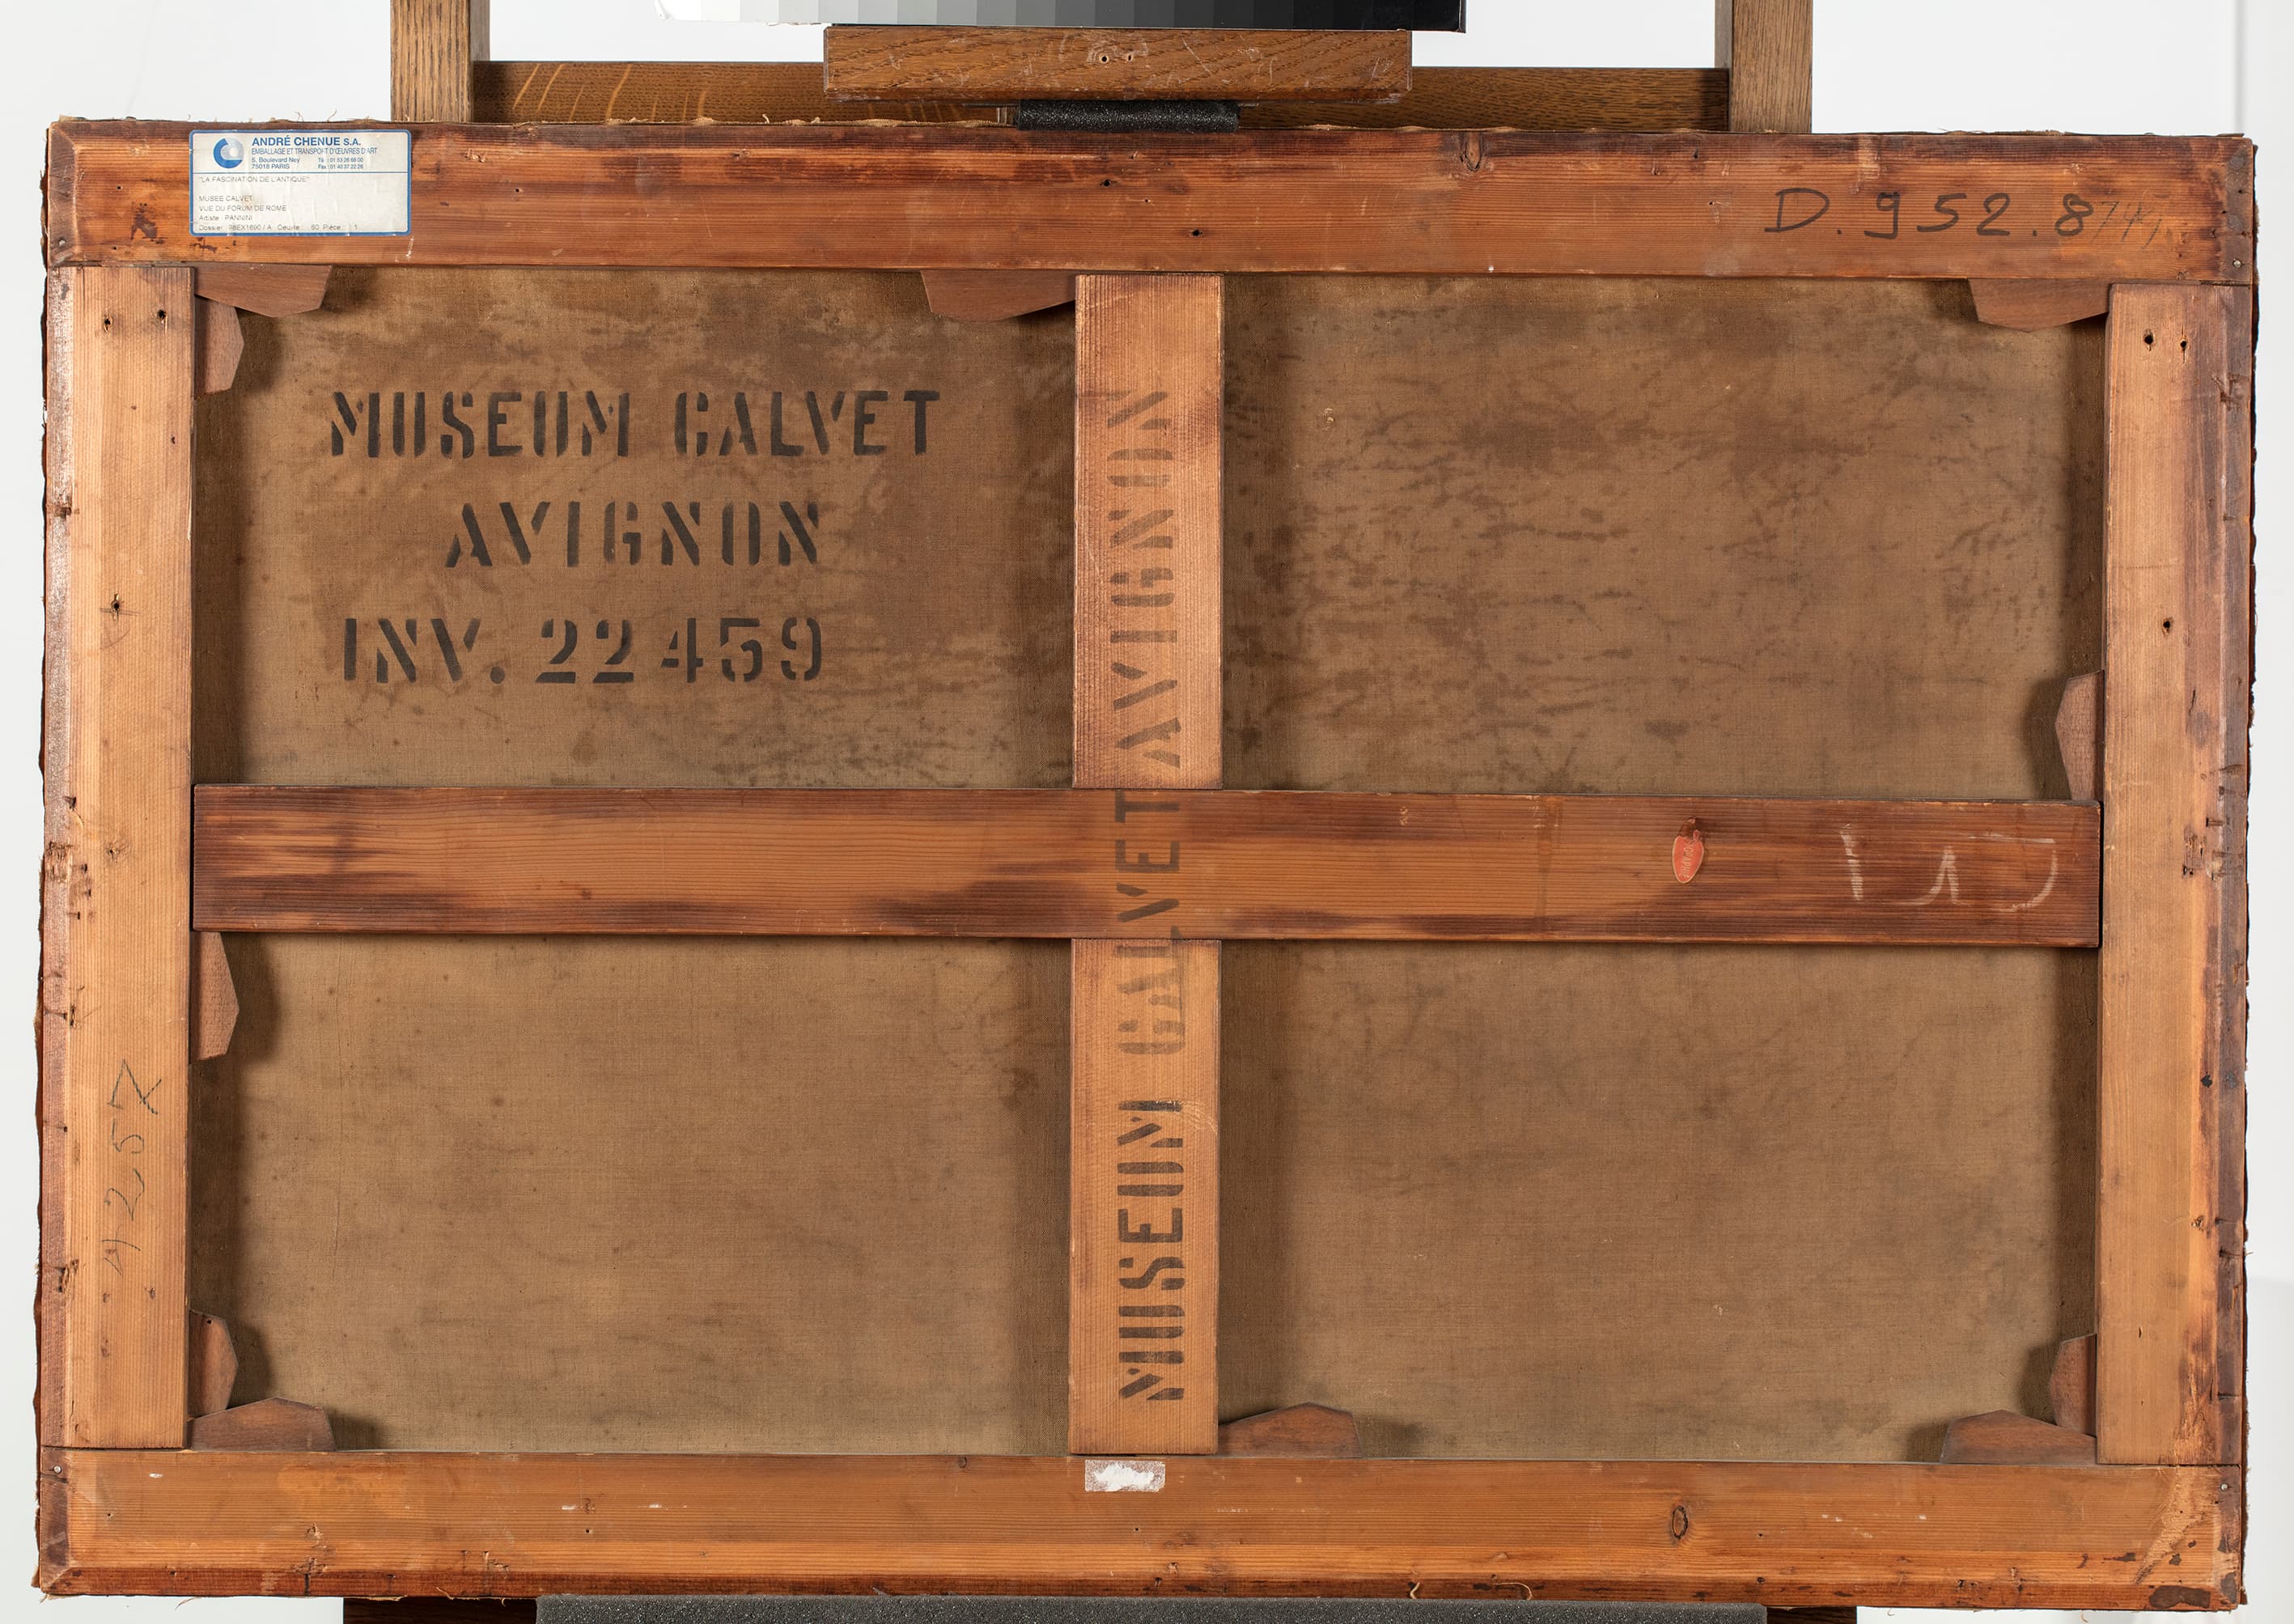 ANDRÉ CHENUE S.A.
EMBALLAGE ET TRANSPORT D'ŒUVRES D'ART
5, Boulevard Ney Tél : 01 53 26 68 00
75018 PARIS Fax : 01 40 37 22 26
"LA FASCINATION DE L'ANTIQUE"
MUSEE CALVET
VUE DU FORUM DE ROME
Artiste : PANNINI
Dossier : 98EX1690 / A Oeuvre : 60 Pièce : 1
D.952.8
MUSEUM CALVET
AVIGNON
INV. 22459
MUSEUM CALVET AVIGNON